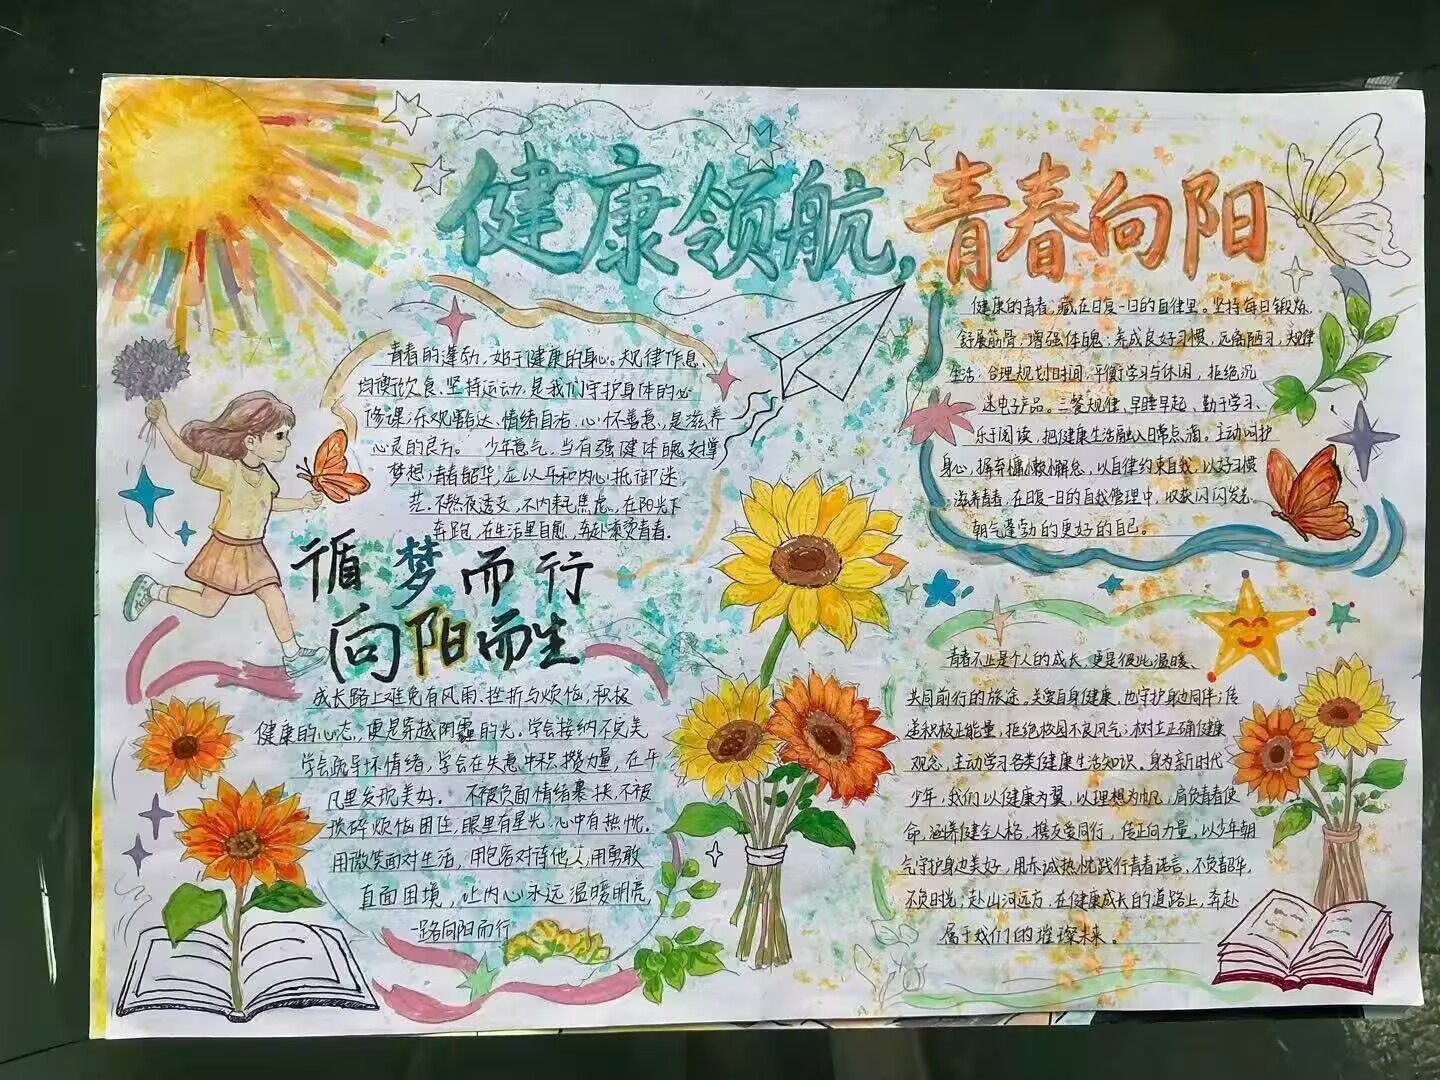 健康领航,青春向阳
青春的蓬勃,始于健康的身心。规律作息、
均衡饮食、坚持运动,是我们守护身体的必
修课;乐观豁达、情绪自洽、心怀善意,是滋养
心灵的良方。少年意气,当有强健体魄支撑
梦想;青春韶华,应以平和内心抵御迷
茫。不熬夜透支,不内耗焦虑,在阳光下
奔跑,在生活里自愈,奔赴滚烫青春.
循梦而行
向阳而生
成长路上难免有风雨、挫折与烦恼,积极
健康的心态,便是穿越阴霾的光。学会接纳不完美
学会疏导坏情绪,学会在失意中积攒力量,在平
凡里发现美好。不被负面情绪裹挟,不被
琐碎烦恼困住,眼里有星光,心中有热忱.
用微笑面对生活,用包容对待他人,用勇敢
直面困境,让内心永远温暖明亮,
一路向阳而行
健康的青春,藏在日复一日的自律里。坚持每日锻炼,
舒展筋骨,增强体魄;养成良好习惯,远离陋习,规律
生活;合理规划时间,平衡学习与休闲,拒绝沉
迷电子产品。三餐规律、早睡早起、勤于学习、
乐于阅读,把健康生活融入日常点滴。主动呵护
身心,摒弃慵懒懈怠,以自律约束自我,以好习惯
滋养青春,在日复一日的自我管理中,收获闪闪发光、
朝气蓬勃的更好的自己。
青春不止是个人的成长,更是彼此温暖、
共同前行的旅途。关爱自身健康,也守护身边同伴;传
递积极正能量,拒绝校园不良风气;树立正确健康
观念,主动学习各类健康生活知识。身为新时代
少年,我们以健康为翼,以理想为帆,肩负青春使
命,涵养健全人格,携友爱同行,传正向力量,以少年朝
气守护身边美好,用赤诚热忱践行青春诺言,不负韶华,
不负时光;赴山河远方,在健康成长的道路上,奔赴
属于我们的璀璨未来。